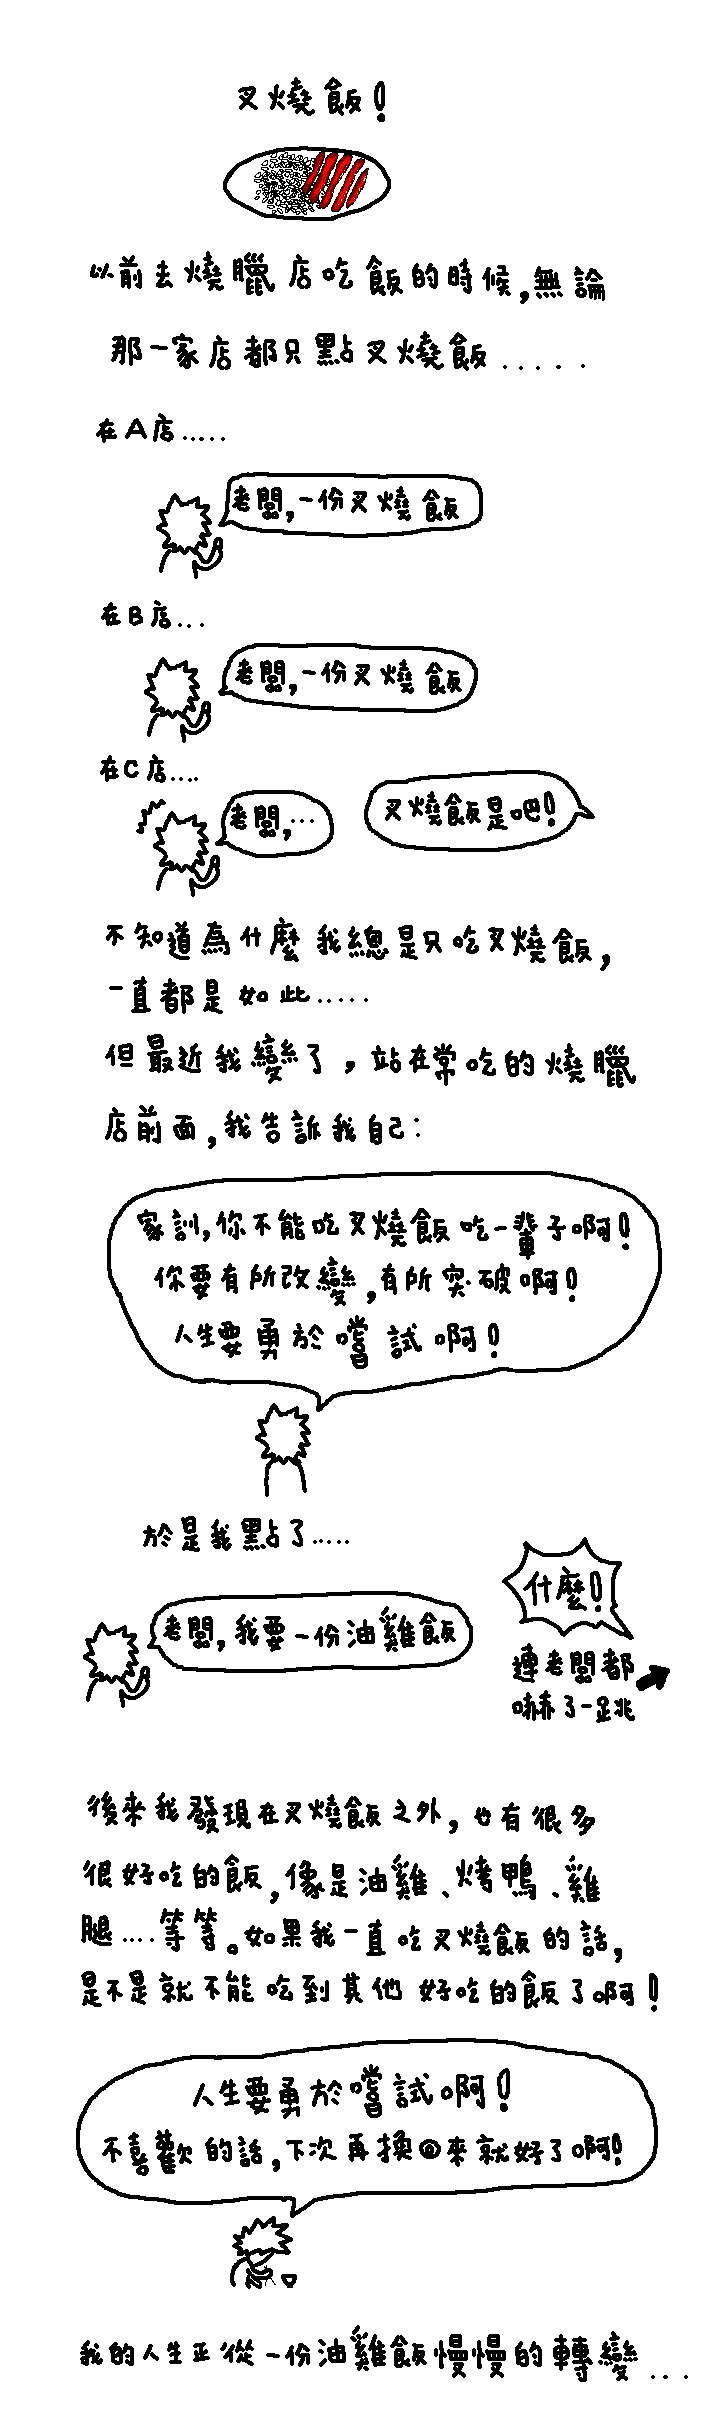 叉燒飯!
以前去燒臘店吃飯的時候,無論
那一家店都只點叉燒飯.....
在A店.....
老闆,一份叉燒飯
在B店...
老闆,一份叉燒飯
在C店....
老闆,...
叉燒飯是吧!
不知道為什麼我總是只吃叉燒飯,
一直都是如此.....
但最近我變了,站在常吃的燒臘
店前面,我告訴我自己:
家訓,你不能吃叉燒飯吃一輩子啊!
你要有所改變,有所突破啊!
人生要勇於嚐試啊!
於是我點了.....
什麼!
老闆,我要一份油雞飯
連老闆都
嚇了一跳
後來我發現在叉燒飯之外,也有很多
很好吃的飯,像是油雞、烤鴨、雞
腿....等等。如果我一直吃叉燒飯的話,
是不是就不能吃到其他好吃的飯了啊!
人生要勇於嚐試啊!
不喜歡的話,下次再換回來就好了啊!
我的人生正從一份油雞飯慢慢的轉變...